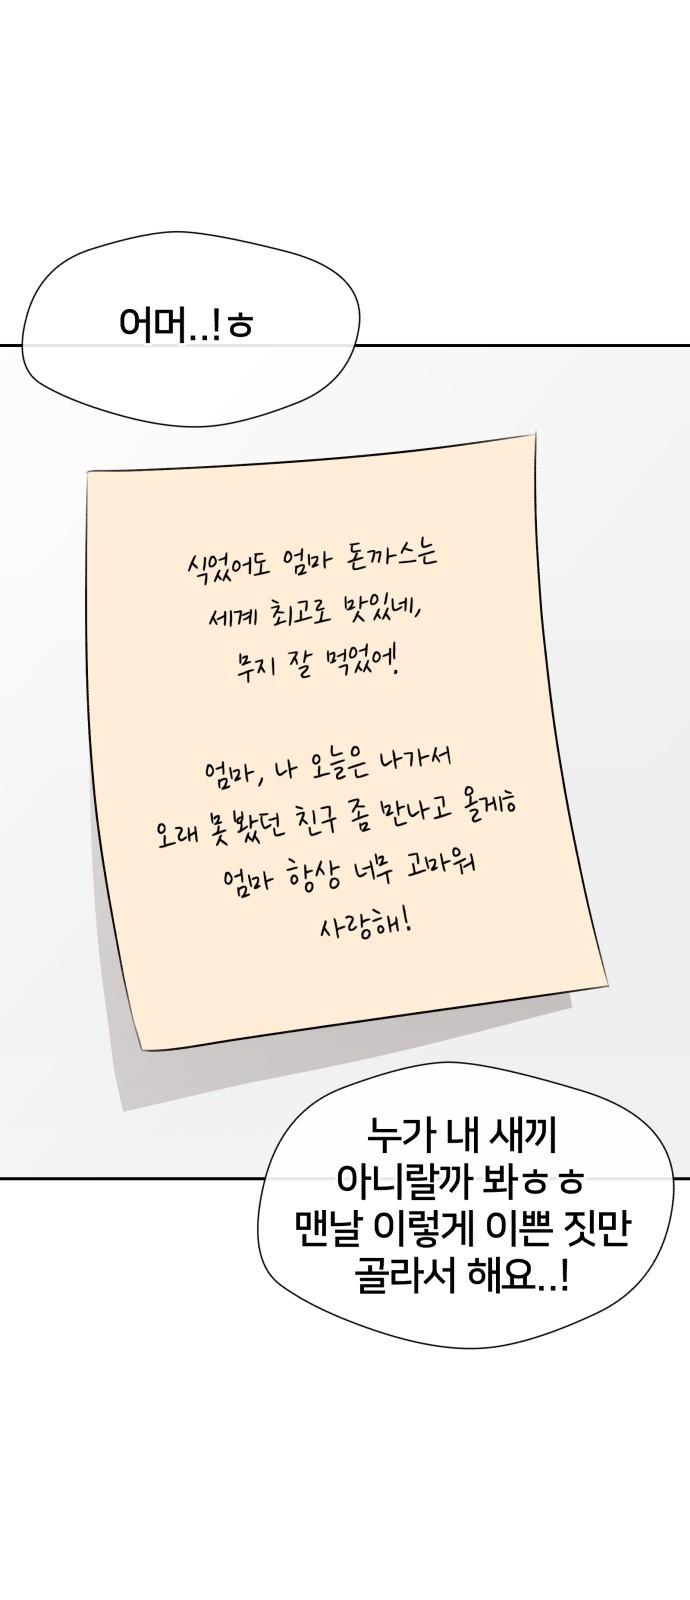 어머..!ㅎ
식었어도 엄마 돈까스는
세계 최고로 맛있네,
무지 잘 먹었어!
엄마, 나 오늘은 나가서
오래 못 봤던 친구 좀 만나고 올게ㅎ
엄마 항상 너무 고마워
사랑해!
누가 내 새끼
아니랄까 봐ㅎㅎ
맨날 이렇게 이쁜 짓만
골라서 해요..!